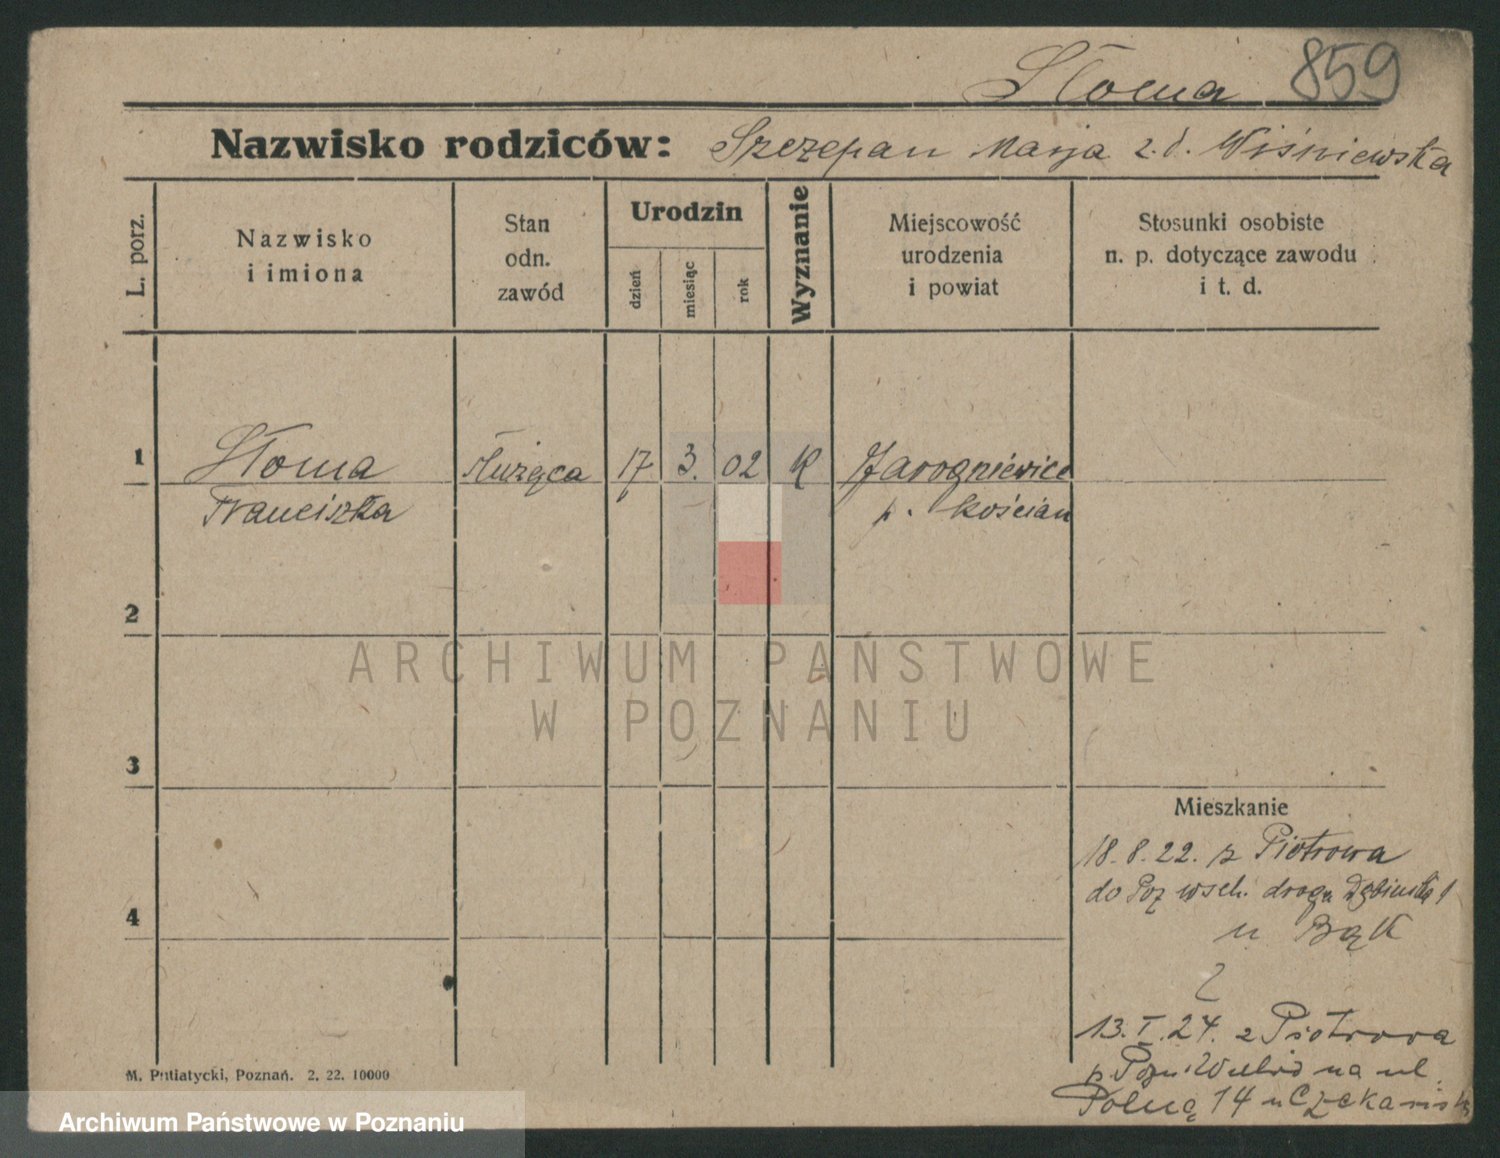 Słoma 859
Nazwisko rodziców: Szczepan Marja z.d. Wiśniewska
L. porz.
Nazwisko
i imiona
Stan
odn.
zawód
Urodzin
dzień
miesiąc
rok
Wyznanie
Miejscowość
urodzenia
i powiat
Stosunki osobiste
n. p. dotyczące zawodu
i t. d.
1 Słoma służąca 17 3. 02 K Jarogniewice
Franciszka p. Kościan
2
ARCHIWUM PAŃSTWOWE
W POZNANIU
3
Mieszkanie
18.8.22. z Piotrowa
do Poz wsch. droga Dębińska 1
4
u Bąk
13.I.24. z Piotrowa
p. Pozn. na ul.
Polną 14 u
M. Putiatycki, Poznań. 2. 22. 10000
Archiwum Państwowe w Poznaniu